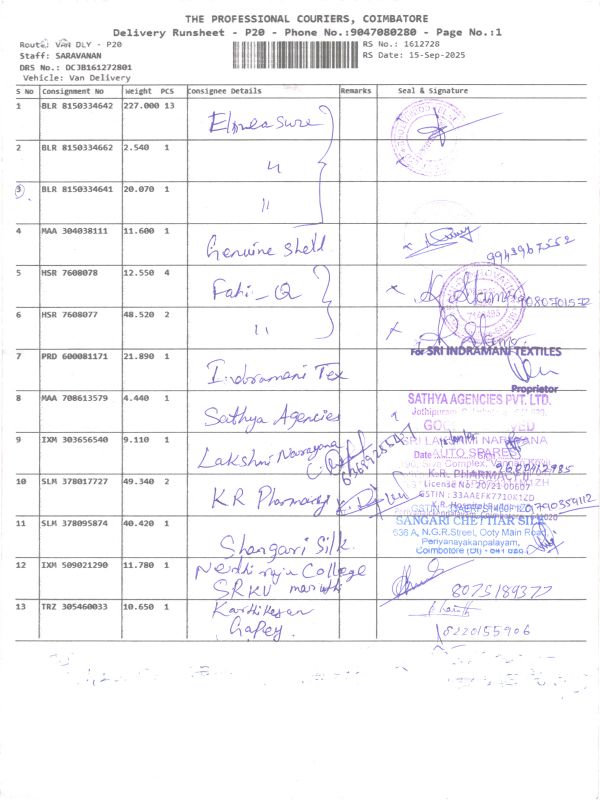 THE PROFESSIONAL COURIERS, COIMBATORE
Delivery Runsheet - P20 - Phone No.:9047080280 - Page No.:1
Route: VAN DLY - P20
RS No.: 1612728
Staff: SARAVANAN
RS Date: 15-Sep-2025
DRS No.: DCJB161272801
Vehicle: Van Delivery
S No Consignment No Weight PCS Consignee Details Remarks Seal & Signature
1 BLR 8150334642 227.000 13 Elmeasure
2 BLR 8150334662 2.540 1 "
3 BLR 8150334641 20.070 1 "
4 MAA 304038111 11.600 1 Genuine Shell
5 HSR 7608078 12.550 4 9080701572
6 HSR 7608077 48.520 2 "
For SRI INDRAMANI TEXTILES
7 PRD 600081171 21.890 1 Indramani Tex
Proprietor
8 MAA 708613579 4.440 1 Sathya Agencies
SATHYA AGENCIES PVT. LTD.
9 IXM 303656540 9.110 1 Lakshmi Narayana
SRI LAKSHMI NARAYANA
AUTO SPARES
Date
9600412985
10 SLM 378017727 49.340 2 K.R Pharmacy
K.R. PHARMACY
License No: 20/21 00607
GSTIN : 33AAEFK7710K1ZD
11 SLM 378095874 40.420 1 Shangari Silk.
SANGARI CHETTIAR SILK
636 A, N.G.R.Street, Ooty Main Road,
Periyanayakanpalayam,
Coimbatore (Dt) - 641 020
12 IXM 509021290 11.780 1 College
SRKV maruthi
8075189377
13 TRZ 305460033 10.650 1 Karthikeyan
8220155906